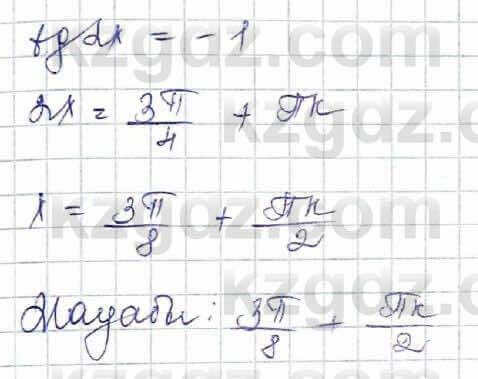 tg2x = - 1
2x = 3π/4 + πk
x = 3π/8 + πk/2
Жауабы: 3π/8 + πk/2
kzgdz.com